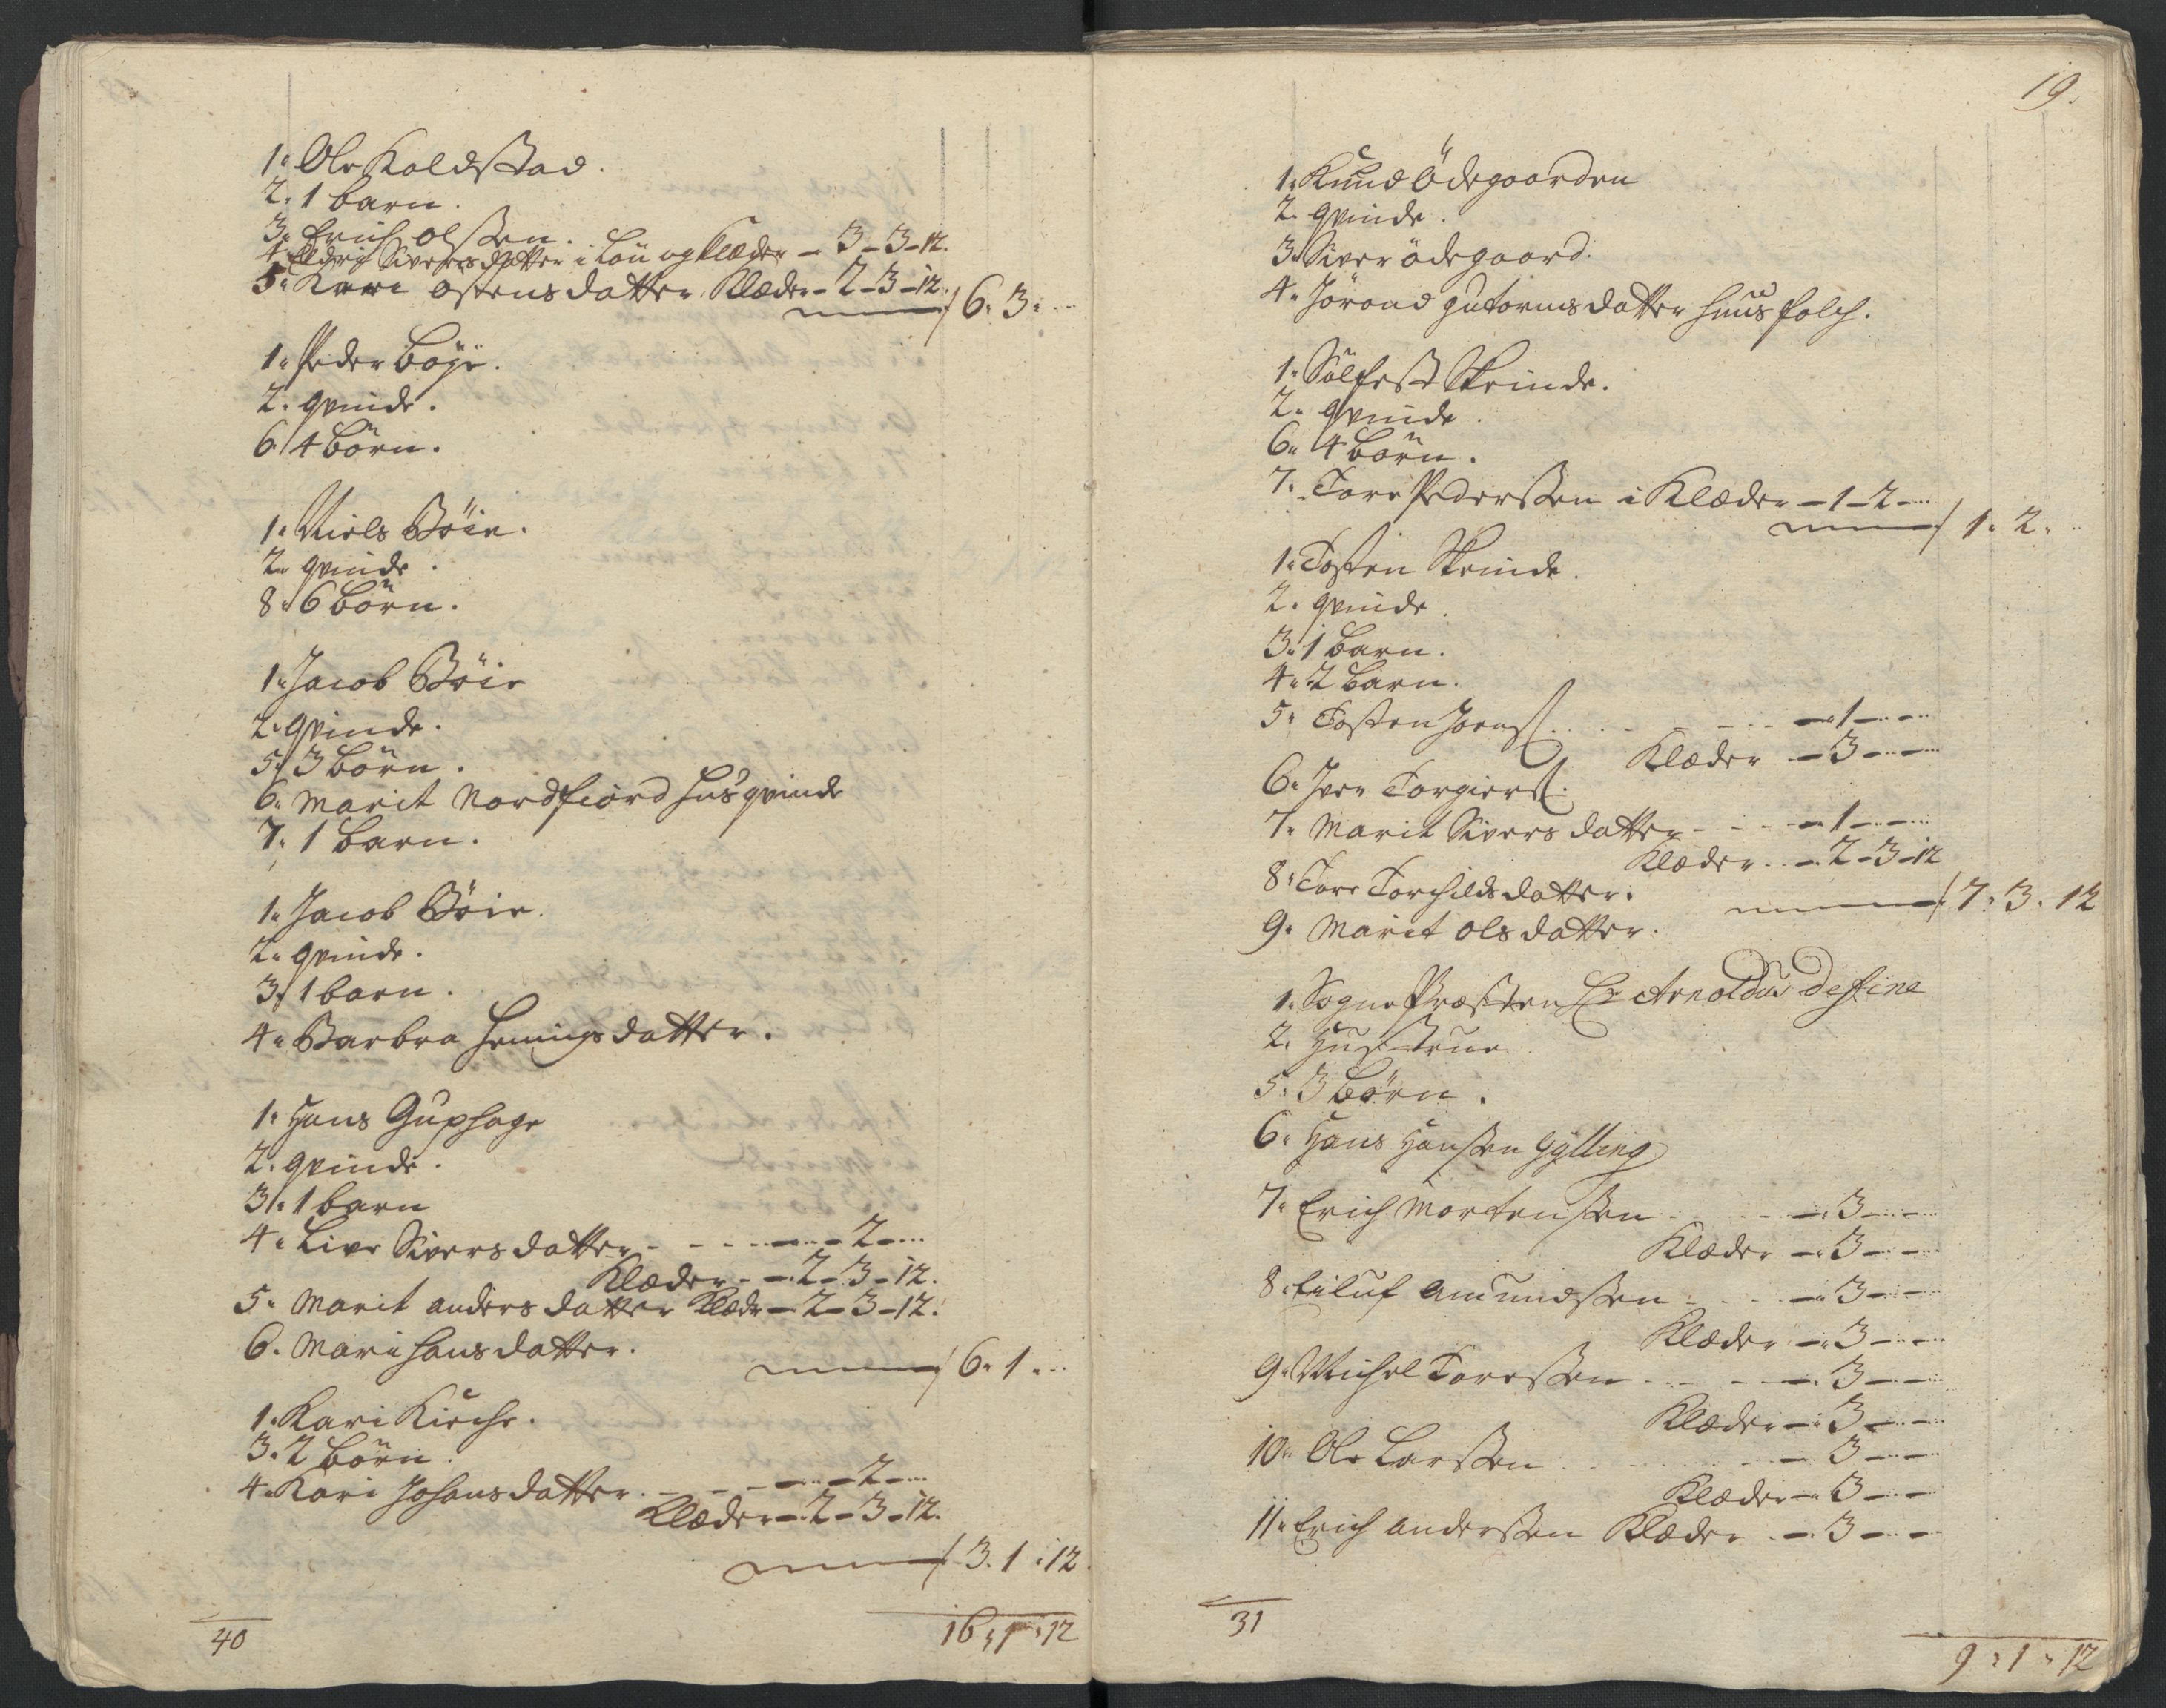 1. Ole Koldstad.
2. 1 barn.
3. Erich olssen.
4. Eldri Siversdatter i Løn og Klæder - 3 - 3 - 12.
5. Kari ostensdatter Klæder - 2 - 3 - 12. / 6. 3. ..
1. Peder Böÿe.
2. qvinde.
6. 4 börn.
1. Niels Böie.
2. qvinde.
8. 6 börn.
1. Jacob Böie
2. qvinde.
5. 3 börn.
6. Marit Nordfiord huusqvinde
7. 1 barn.
1. Jacob Böie.
2. qvinde.
3. 1 barn.
4. Barbra hemingsdatter.
1. Hans Guphage
2. qvinde.
3. 1 barn
4. Live Siversdatter - - - - 2 - ..
Klæder - 2 - 3 - 12.
5. Marit andersdatter Klæder - 2 - 3 - 12.
6. Mari hansdatter.
/ 6. 1. ..
1. Kari Kirche.
3. 2 börn.
4. Kari Johansdatter. - - - 2 - ..
Klæder - 2 - 3 - 12.
/ 3. 1. 12.
40
16. 1. 12
19.
1. Knud Ödegaarden
2. qvinde.
3. Siver ödegaard.
4. Jörand gutormsdatter huusfolch.
1. Sölfest Skrinde.
2. qvinde.
6. 4 börn.
7. Tore Pederssen i Klæder - 1 - 2 - ..
/ 1. 2. ..
1. Tosten Skrinde.
2. qvinde.
3. 1 barn.
4. 2 barn.
5. Tosten Joenss. - - - 1 - - -
Klæder - 3 - - -
6. Iver Torgierss.
7. Marit Siversdatter - - - 1 - - -
Klæder - 2 - 3 - 12
8. Tore Torchildsdatter.
/ 7. 3. 12
9. Marit olsdatter.
1. SognePræsten Hr Arnoldus de fine
2. Hustrue
5. 3 börn.
6. Hans Hanssen Gÿlling
7. Erich Mortenssen - - 3 - - -
Klæder - 3 - - -
8. Eiluf Amundssen - - 3 - - -
Klæder - 3 - - -
9. Michel Toressen - - 3 - - -
Klæder - 3 - - -
10. Ole Larssen - - 3 - - -
Klæder - 3 - - -
11. Erich anderssen Klæder - 3 - - -
31
9. 1. 12